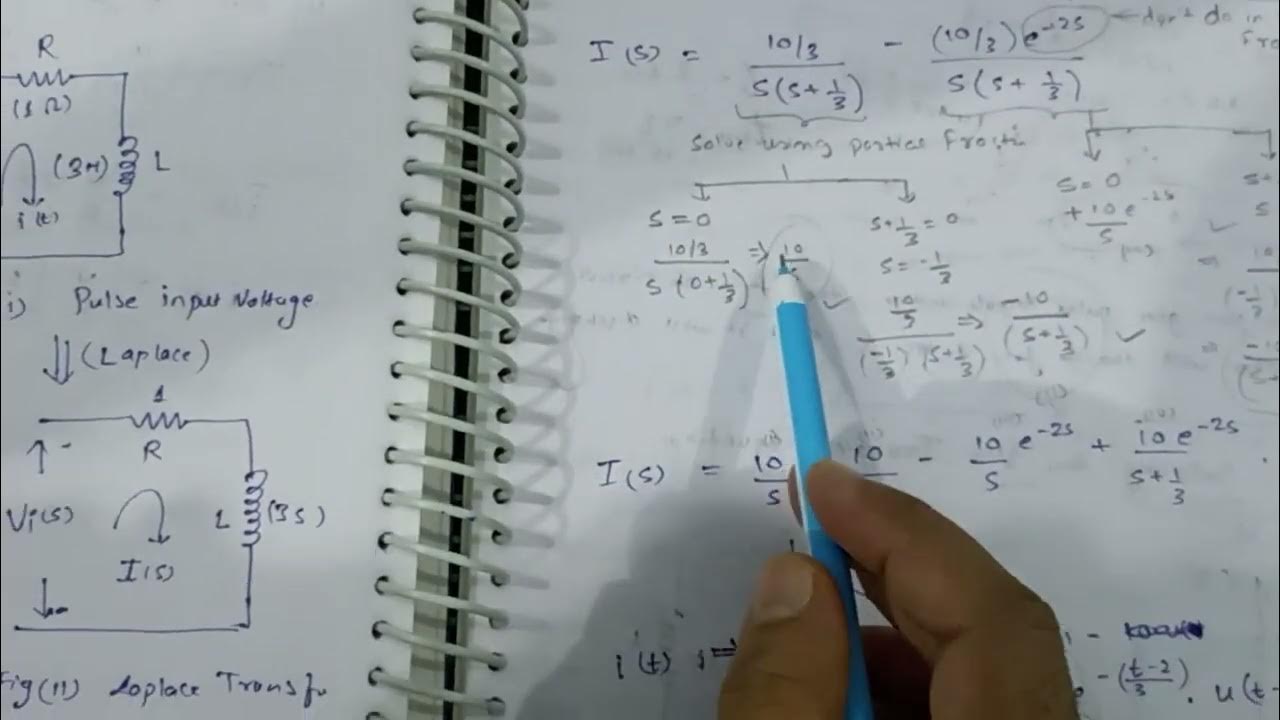 R
(1 Ω)
(3H) L
i(t)
i) Pulse input Voltage
(Laplace)
1
R
Vi(s) L (3s)
I(s)
Fig(11) Laplace Transfo
I(s) = 10/3 / s(s+1/3) - (10/3)e^-2s / s(s+1/3)
do in
solve using
s=0
10/3 / s(0+1/3) => 10
s+1/3=0
s=-1/3
10/3 / (-1/3)(s+1/3) => -10/(s+1/3) ✓
s=0
+10e^-2s / s
I(s) = 10/s 10 - 10/s e^-2s + 10e^-2s / s+1/3 .
i(t)
-(t-2/3) . u(t-